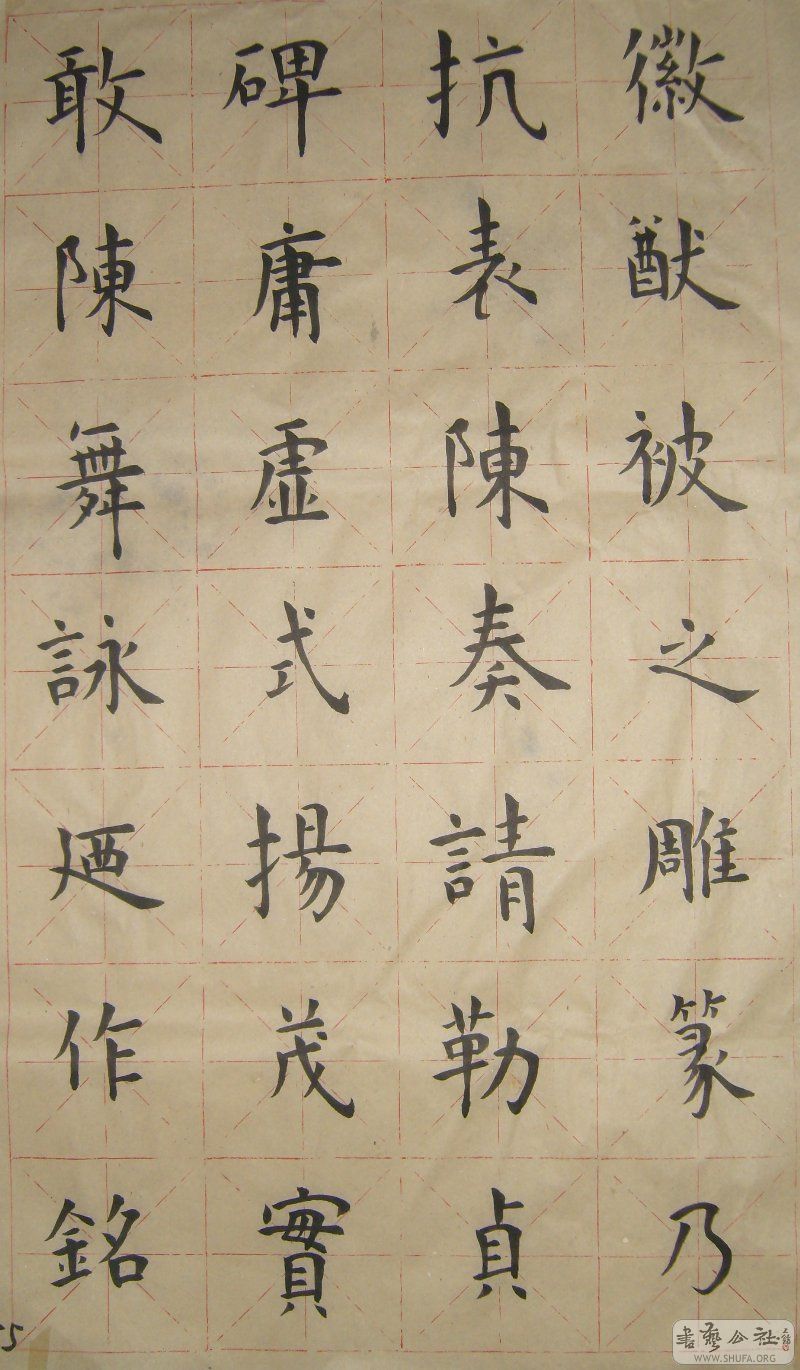 徽猷被之雕篆乃
抗表陳奏請勒貞
碑庸虛式揚茂實
敢陳舞詠廼作銘
5
書藝公社
WWW.SHUFA.ORG